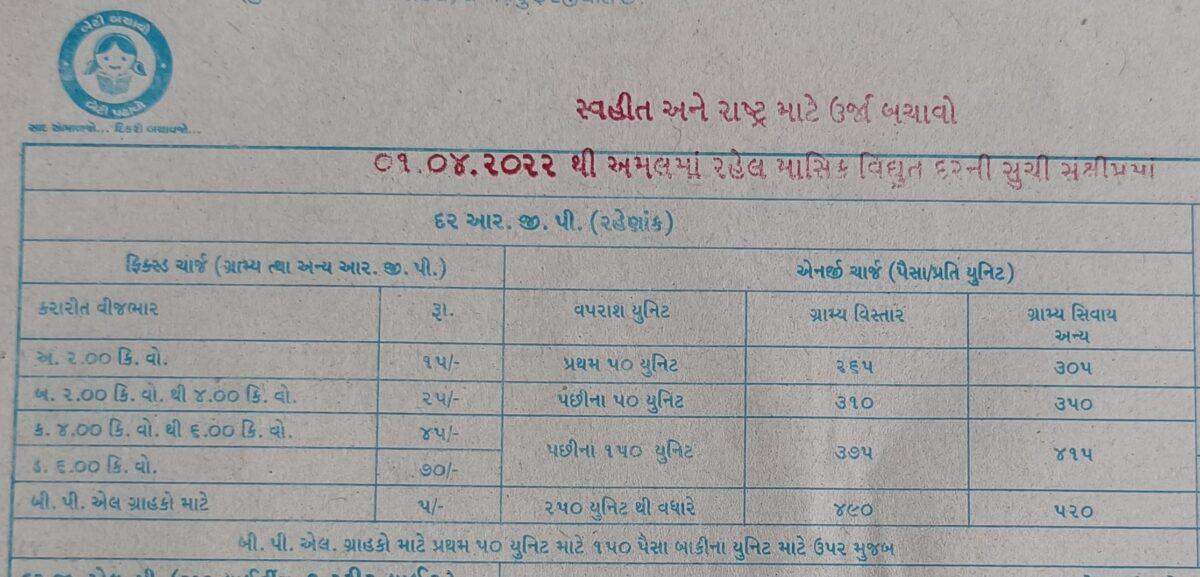 બેટી બચાવો
બેટી પઢાવો
સાદ સંભાળજો... દિકરી બચાવજો...
સ્વહીત અને રાષ્ટ્ર માટે ઉર્જા બચાવો
૦૧.૦૪.૨૦૨૨ થી અમલમાં રહેલ માસિક વિદ્યુત દરની સુચી સંક્ષીપ્રમાં
દર આર. જી. પી. (રહેણાંક)
ફિક્સ્ડ ચાર્જ (ગ્રામ્ય તથા અન્ય આર. જી. પી.) એનર્જી ચાર્જ (પૈસા/પ્રતિ યુનિટ)
કરારીત વીજભાર રૂા. વપરાશ યુનિટ ગ્રામ્ય વિસ્તાર ગ્રામ્ય સિવાય
અન્ય
અ. ૨.૦૦ કિ. વો. ૧૫/- પ્રથમ ૫૦ યુનિટ ૨૬૫ ૩૦૫
બ. ૨.૦૦ કિ. વો. થી ૪.૦૦ કિ. વો. ૨૫/- પછીના ૫૦ યુનિટ ૩૧૦ ૩૫૦
ક. ૪.૦૦ કિ. વો. થી ૬.૦૦ કિ. વો. ૪૫/- પછીના ૧૫૦ યુનિટ ૩૭૫ ૪૧૫
ડ. ૬.૦૦ કિ. વો. ૭૦/-
બી. પી. એલ ગ્રાહકો માટે ૫/- ૨૫૦ યુનિટ થી વધારે ૪૯૦ ૫૨૦
બી. પી. એલ. ગ્રાહકો માટે પ્રથમ ૫૦ યુનિટ માટે ૧૫૦ પૈસા બાકીના યુનિટ માટે ઉપર મુજબ